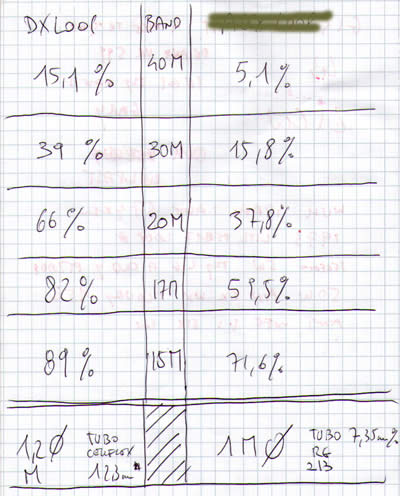 DXLOOP BAND
15,1 % 40M 5,1 %
39 % 30M 15,8 %
66 % 20M 37,8 %
82 % 17M 59,5 %
89 % 15M 71,6 %
1,20 M TUBO 1 M Ø TUBO 7,35 m
RG
123 m 213